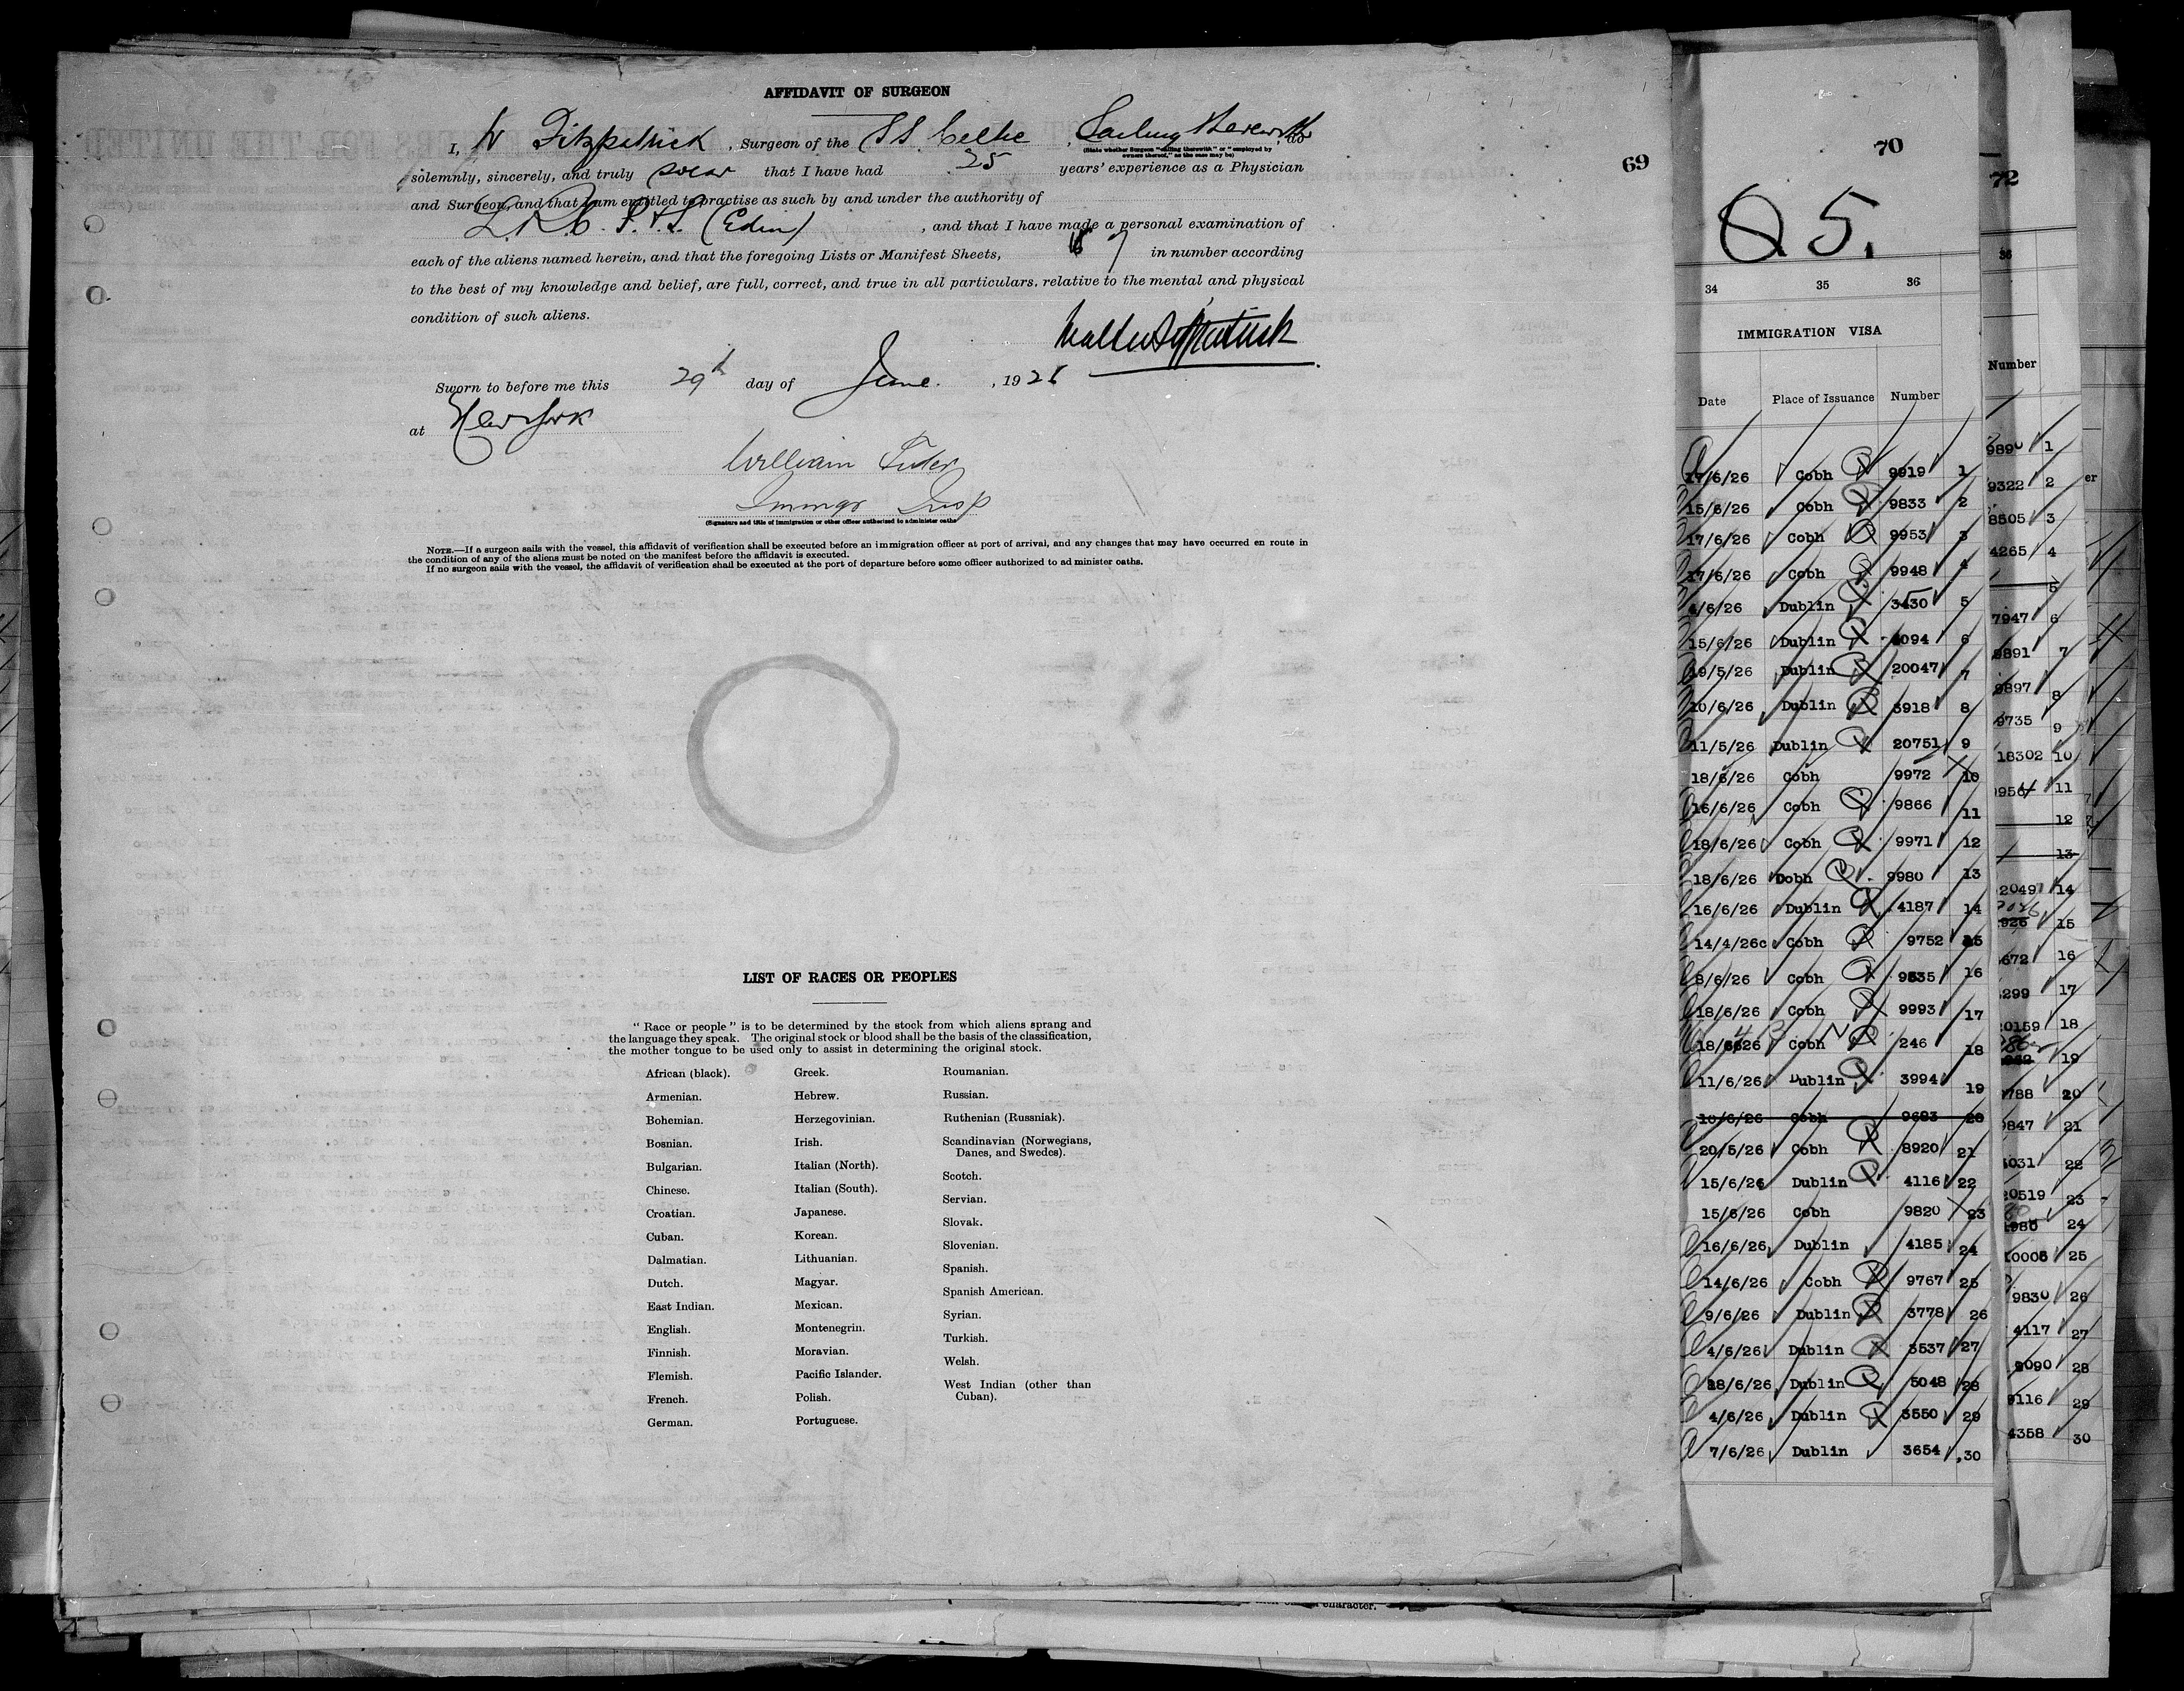 AFFIDAVIT OF SURGEON
I, W Fitzpatrick, Surgeon of the SS Celtic, Sailing therewith, do
(State whether Surgeon "sailing therewith" or "employed by
owners thereof," as the case may be)
solemnly, sincerely, and truly swear that I have had 25 years' experience as a Physician
and Surgeon, and that I am entitled to practise as such by and under the authority of
L.R.C.P.&S. (Edin), and that I have made a personal examination of
each of the aliens named herein, and that the foregoing Lists or Manifest Sheets, 7 in number according
to the best of my knowledge and belief, are full, correct, and true in all particulars, relative to the mental and physical
condition of such aliens.
Walter Fitzpatrick
Sworn to before me this 29th day of June, 192
at New York
William
Immgr Insp
(Signature and title of immigration or other officer authorized to administer oaths
NOTE.—If a surgeon sails with the vessel, this affidavit of verification shall be executed before an immigration officer at port of arrival, and any changes that may have occurred en route in
the condition of any of the aliens must be noted on the manifest before the affidavit is executed.
If no surgeon sails with the vessel, the affidavit of verification shall be executed at the port of departure before some officer authorized to administer oaths.
LIST OF RACES OR PEOPLES
"Race or people" is to be determined by the stock from which aliens sprang and
the language they speak. The original stock or blood shall be the basis of the classification,
the mother tongue to be used only to assist in determining the original stock.
African (black).
Armenian.
Bohemian.
Bosnian.
Bulgarian.
Chinese.
Croatian.
Cuban.
Dalmatian.
Dutch.
East Indian.
English.
Finnish.
Flemish.
French.
German.
Greek.
Hebrew.
Herzegovinian.
Irish.
Italian (North).
Italian (South).
Japanese.
Korean.
Lithuanian.
Magyar.
Mexican.
Montenegrin.
Moravian.
Pacific Islander.
Polish.
Portuguese.
Roumanian.
Russian.
Ruthenian (Russniak).
Scandinavian (Norwegians,
Danes, and Swedes).
Scotch.
Servian.
Slovak.
Slovenian.
Spanish.
Spanish American.
Syrian.
Turkish.
Welsh.
West Indian (other than
Cuban).
69
70
Q 5.
34 35 36
IMMIGRATION VISA
Date Place of Issuance Number
17/6/26 Cobh 9919 1
15/6/26 Cobh 9833 2
17/6/26 Cobh 9953 3
17/6/26 Cobh 9948 4
4/6/26 Dublin 5
15/6/26 Dublin 4094 6
19/5/26 Dublin 20047 7
10/6/26 Dublin 3918 8
11/5/26 Dublin 20751 9
18/6/26 Cobh 9972 10
16/6/26 Cobh 9866 11
18/6/26 Cobh 9971 12
18/6/26 Dobh 9980 13
16/6/26 Dublin 4187 14
14/4/26 Cobh 9752 15
8/6/26 Cobh 9535 16
18/6/26 Cobh 9993 17
Cobh 246 18
11/6/26 Dublin 3994 19
10/6/26 Cobh 9683 20
20/5/26 Cobh 8920 21
15/6/26 Dublin 4116 22
15/6/26 Cobh 9820 23
16/6/26 Dublin 4185 24
14/6/26 Cobh 9767 25
9/6/26 Dublin 3778 26
4/6/26 Dublin 3537 27
28/6/26 Dublin 5048 28
4/6/26 Dublin 3550 29
7/6/26 Dublin 3654 30
72
36
Number
9890 1
9322 2
8505 3
4265 4
5
7947 6
9891 7
9897 8
9735 9
18302 10
11
12
13
20497 14
15
672 16
299 17
20159 18
19
788 20
9847 21
031 22
20519 23
24
10006 25
9830 26
4117 27
9090 28
9116 29
4358 30
er
character.